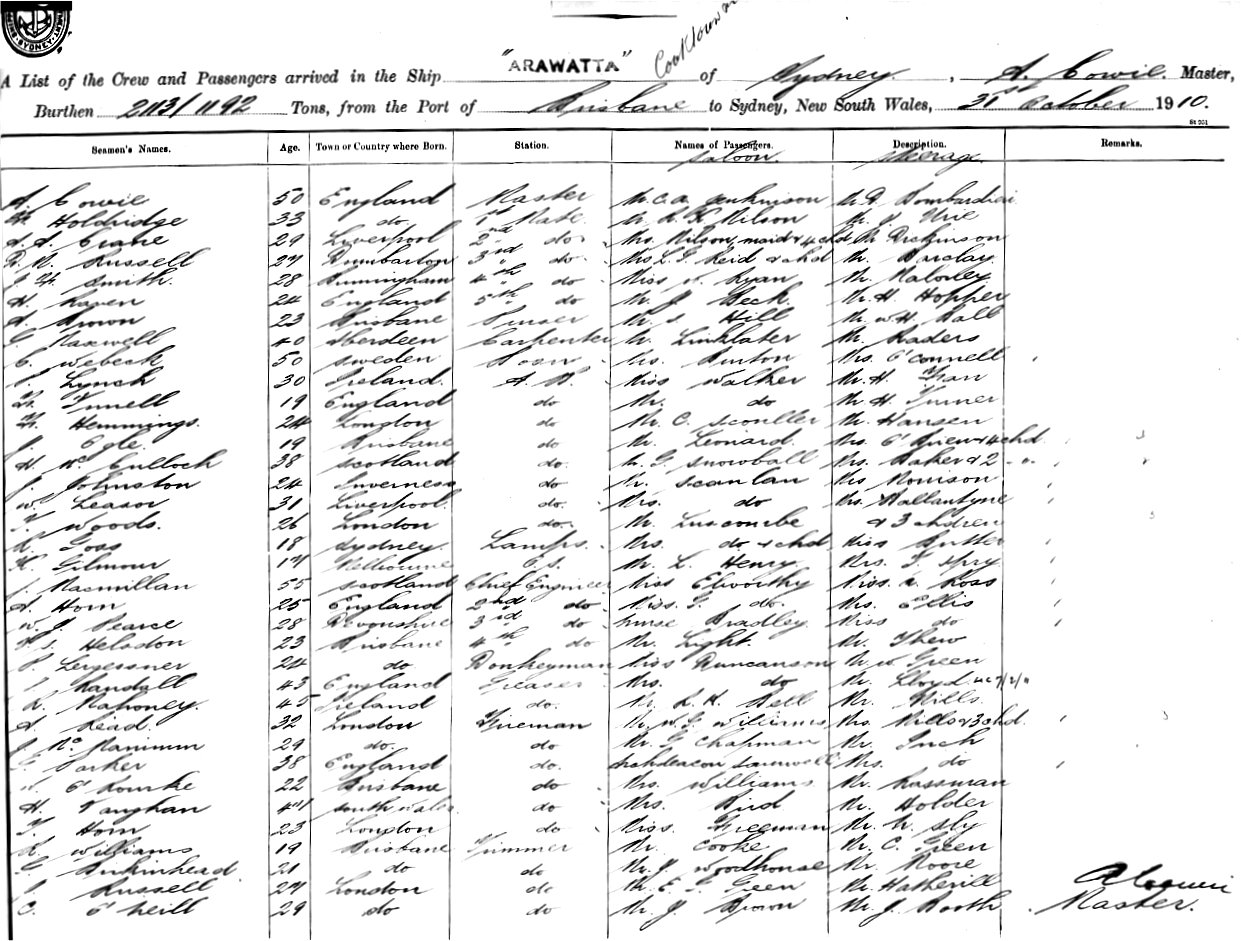 SYDNEY
Cooktown
A List of the Crew and Passengers arrived in the Ship "ARAWATTA" of Sydney, A. Cowie. Master,
Burthen 2113/1192 Tons, from the Port of Brisbane to Sydney, New South Wales, 31st October 1910.
St 201
Seamen's Names. Age. Town or Country where Born. Station. Names of Passengers. Description. Remarks.
Saloon. Steerage.
A. Cowie 50 England Master Mr. C. A. Jenkinson Mr. Bombardieri
Holdridge 33 do 1st Mate Mr. R. K. Nilson Mr. J. Urie
Crane 29 Liverpool 2nd do Mrs. Nilson, maid & 4 chd Mr. Dickinson
Russell 27 Dumbarton 3rd do Mrs. L. G. Reid & chd Mr. Barclay
Smith. 28 Birmingham 4th do Miss W. Ryan Mr. Maloney
H. Raven 24 England 5th do Mr. J. Beck. Mr. H. Hopper
A. Brown 23 Brisbane Purser Mr. S. Hill Mr. W. H. Ball
G. Maxwell 40 Aberdeen Carpenter Mr. Linklater Mr. Raders
C. Webeck 50 Sweden Bosn Mrs. Burton Mrs. O'Connell
J. Lynch 30 Ireland. A. B. Miss Walker Mr. H.
Tunnell 19 England do Mr. do Mr. H. Turner
Hemmings. 24 London do Mr. C. Scouller Mr. Hansen
J. Ogle. 19 Brisbane do Mr. Leonard. Mrs. O'Brien & 4 chd
H. McCulloch 38 Scotland do. Mr. G. Snowball Mrs. Baker & 2 " "
J. Johnston 24 Inverness do Mr. Scanlan Mrs Morrison
W. Leason 31 Liverpool. do. Mrs. do Mrs. Ballantyne
T. Woods. 26 London do. Mr. Luscombe & 3 children
R. Goss 18 Sydney. Lamps. Mrs. do & chd Miss Butler
K. Gilmour 17 Melbourne O.S. Mr. L. Henry Mrs. T. Spry
J. Macmillan 55 Scotland Chief Engineer Miss Elworthy Miss A. Ross
A. Horn 25 England 2nd do Miss. G. do. Mrs. Ellis
W. J. Pearce 28 Devonshire 3rd do Nurse Bradley Miss do
Helsdon 23 Brisbane 4th do Mr. Light. Mr. Thew
P. Lergessner 24 do Donkeyman Miss Duncanson Mr. W. Green
J. Randall 43 England Greaser Mrs. do Mr. Lloyd
R. Mahoney. 45 Ireland do. Mr. R. H. Bell Mr. Mills
A. Read. 32 London Fireman Mr. W. G. Williams Mrs. Mills & 3 chd.
J. McManimm 29 do. do Mr. G. Chapman Mr. Inch
Parker 38 England do. Archdeacon Samwell Mrs. do
O'Rourke 22 Brisbane do Mrs. Williams Mr. Kassman
H. Vaughan 41 South Wales do Mrs. Bird Mr. Holder
T. Horn 23 London do Miss. Freeman Mr. W. Sly
R. Williams 19 Brisbane Trimmer Mr. Cooke Mr. C. Green
G. Birkinhead. 21 do do Mr. J. Woodhouse Mr. Moore
J. Russell 27 London do Mr. E. G. Green Mr. Hatherill
C. O'Neill 29 do do Mr. J. Brown Mr. J. Booth
A Cowie
Master.